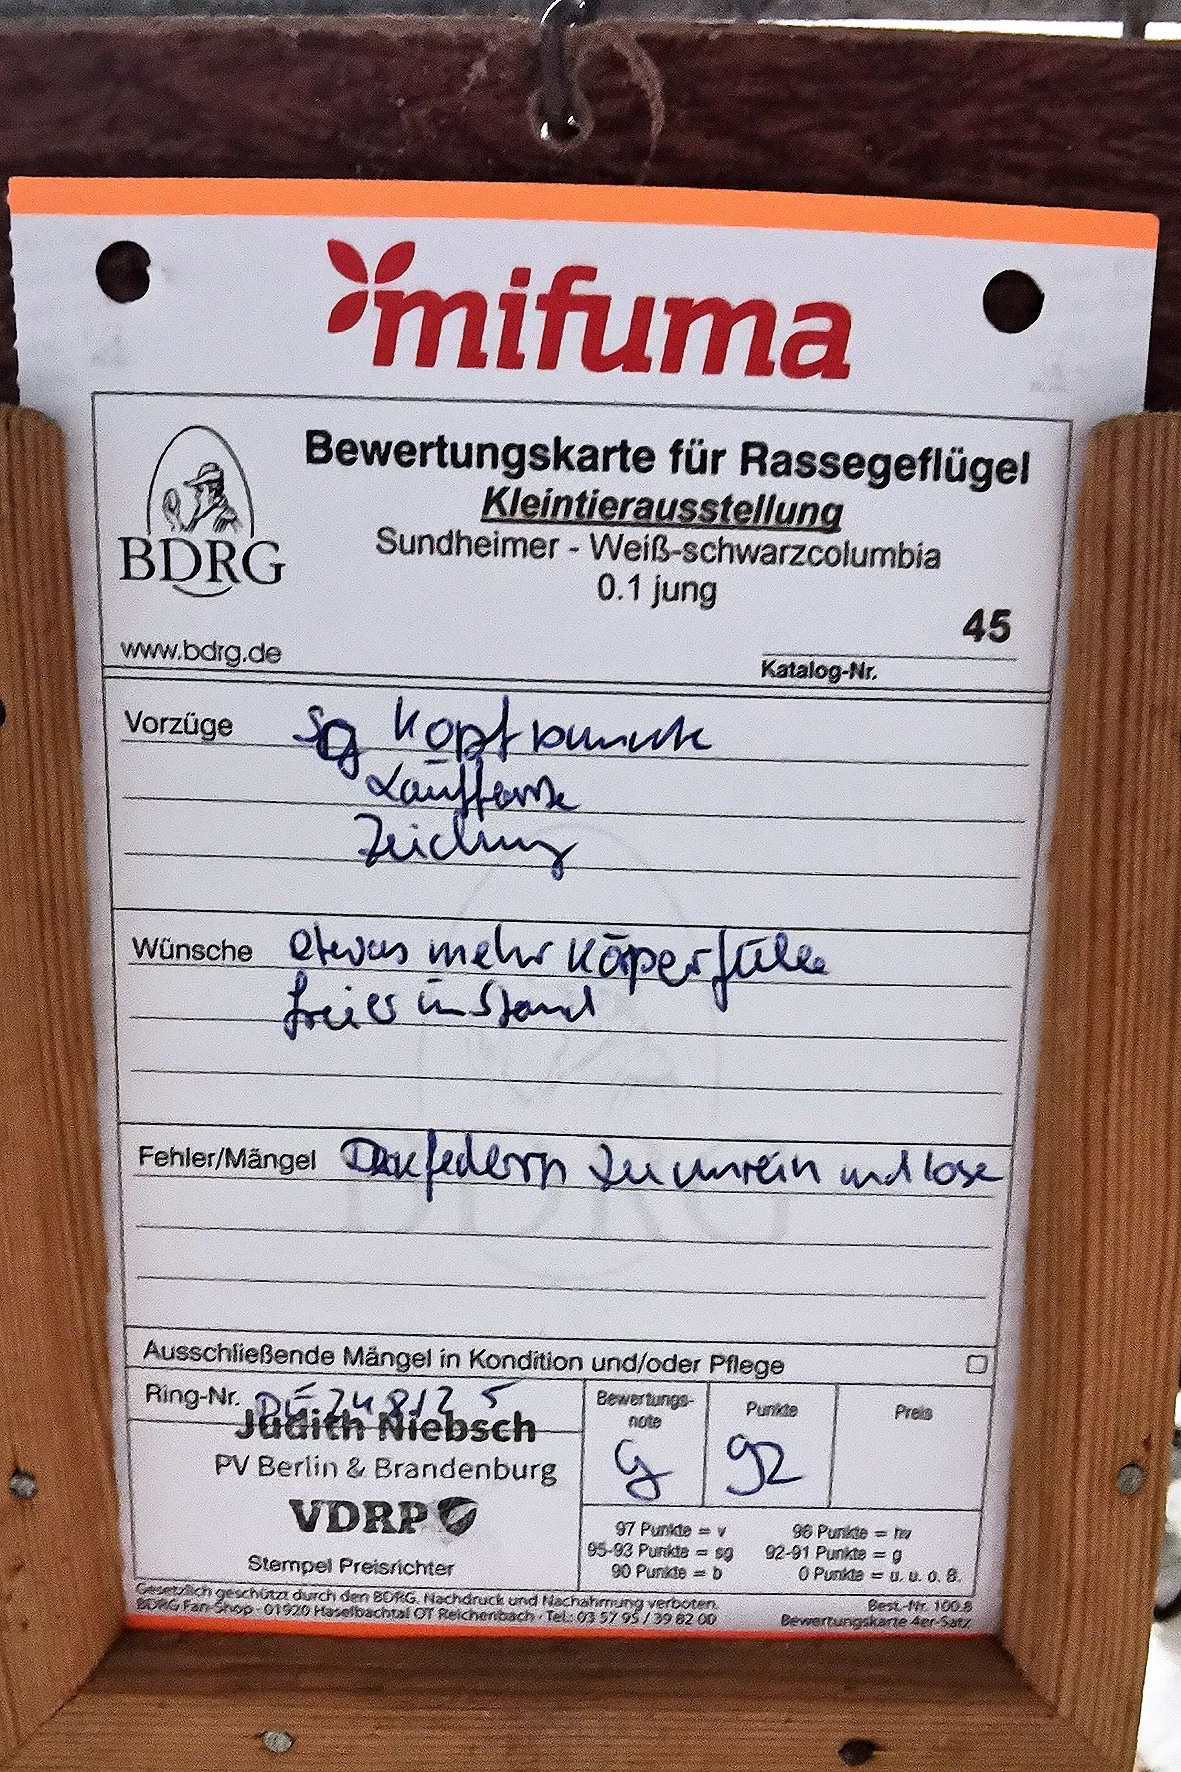 mifuma
BDRG
www.bdrg.de
Bewertungskarte für Rassegeflügel
Kleintierausstellung
Sundheimer - Weiß-schwarzcolumbia
0.1 jung
45
Katalog-Nr.
Vorzüge sg Kopfpunkte
Lauffarbe
Zeichung
Wünsche etwas mehr Körperfülle
freier im Stand
Fehler/Mängel Deckfedern zu unrein und lose
BDRG
Ausschließende Mängel in Kondition und/oder Pflege
Ring-Nr.
Judith Niebsch
PV Berlin & Brandenburg
VDRP
Stempel Preisrichter
Bewertungs-
note
g
Punkte
92
Preis
97 Punkte = v 96 Punkte = hv
95-93 Punkte = sg 92-91 Punkte = g
90 Punkte = b 0 Punkte = u. u. o. B.
Gesetzlich geschützt durch den BDRG. Nachdruck und Nachahmung verboten. Best.-Nr. 100.8
BDRG Fan-Shop · 01920 Haselbachtal OT Reichenbach · Tel.: 03 57 95 / 39 82 00 Bewertungskarte 4er-Satz